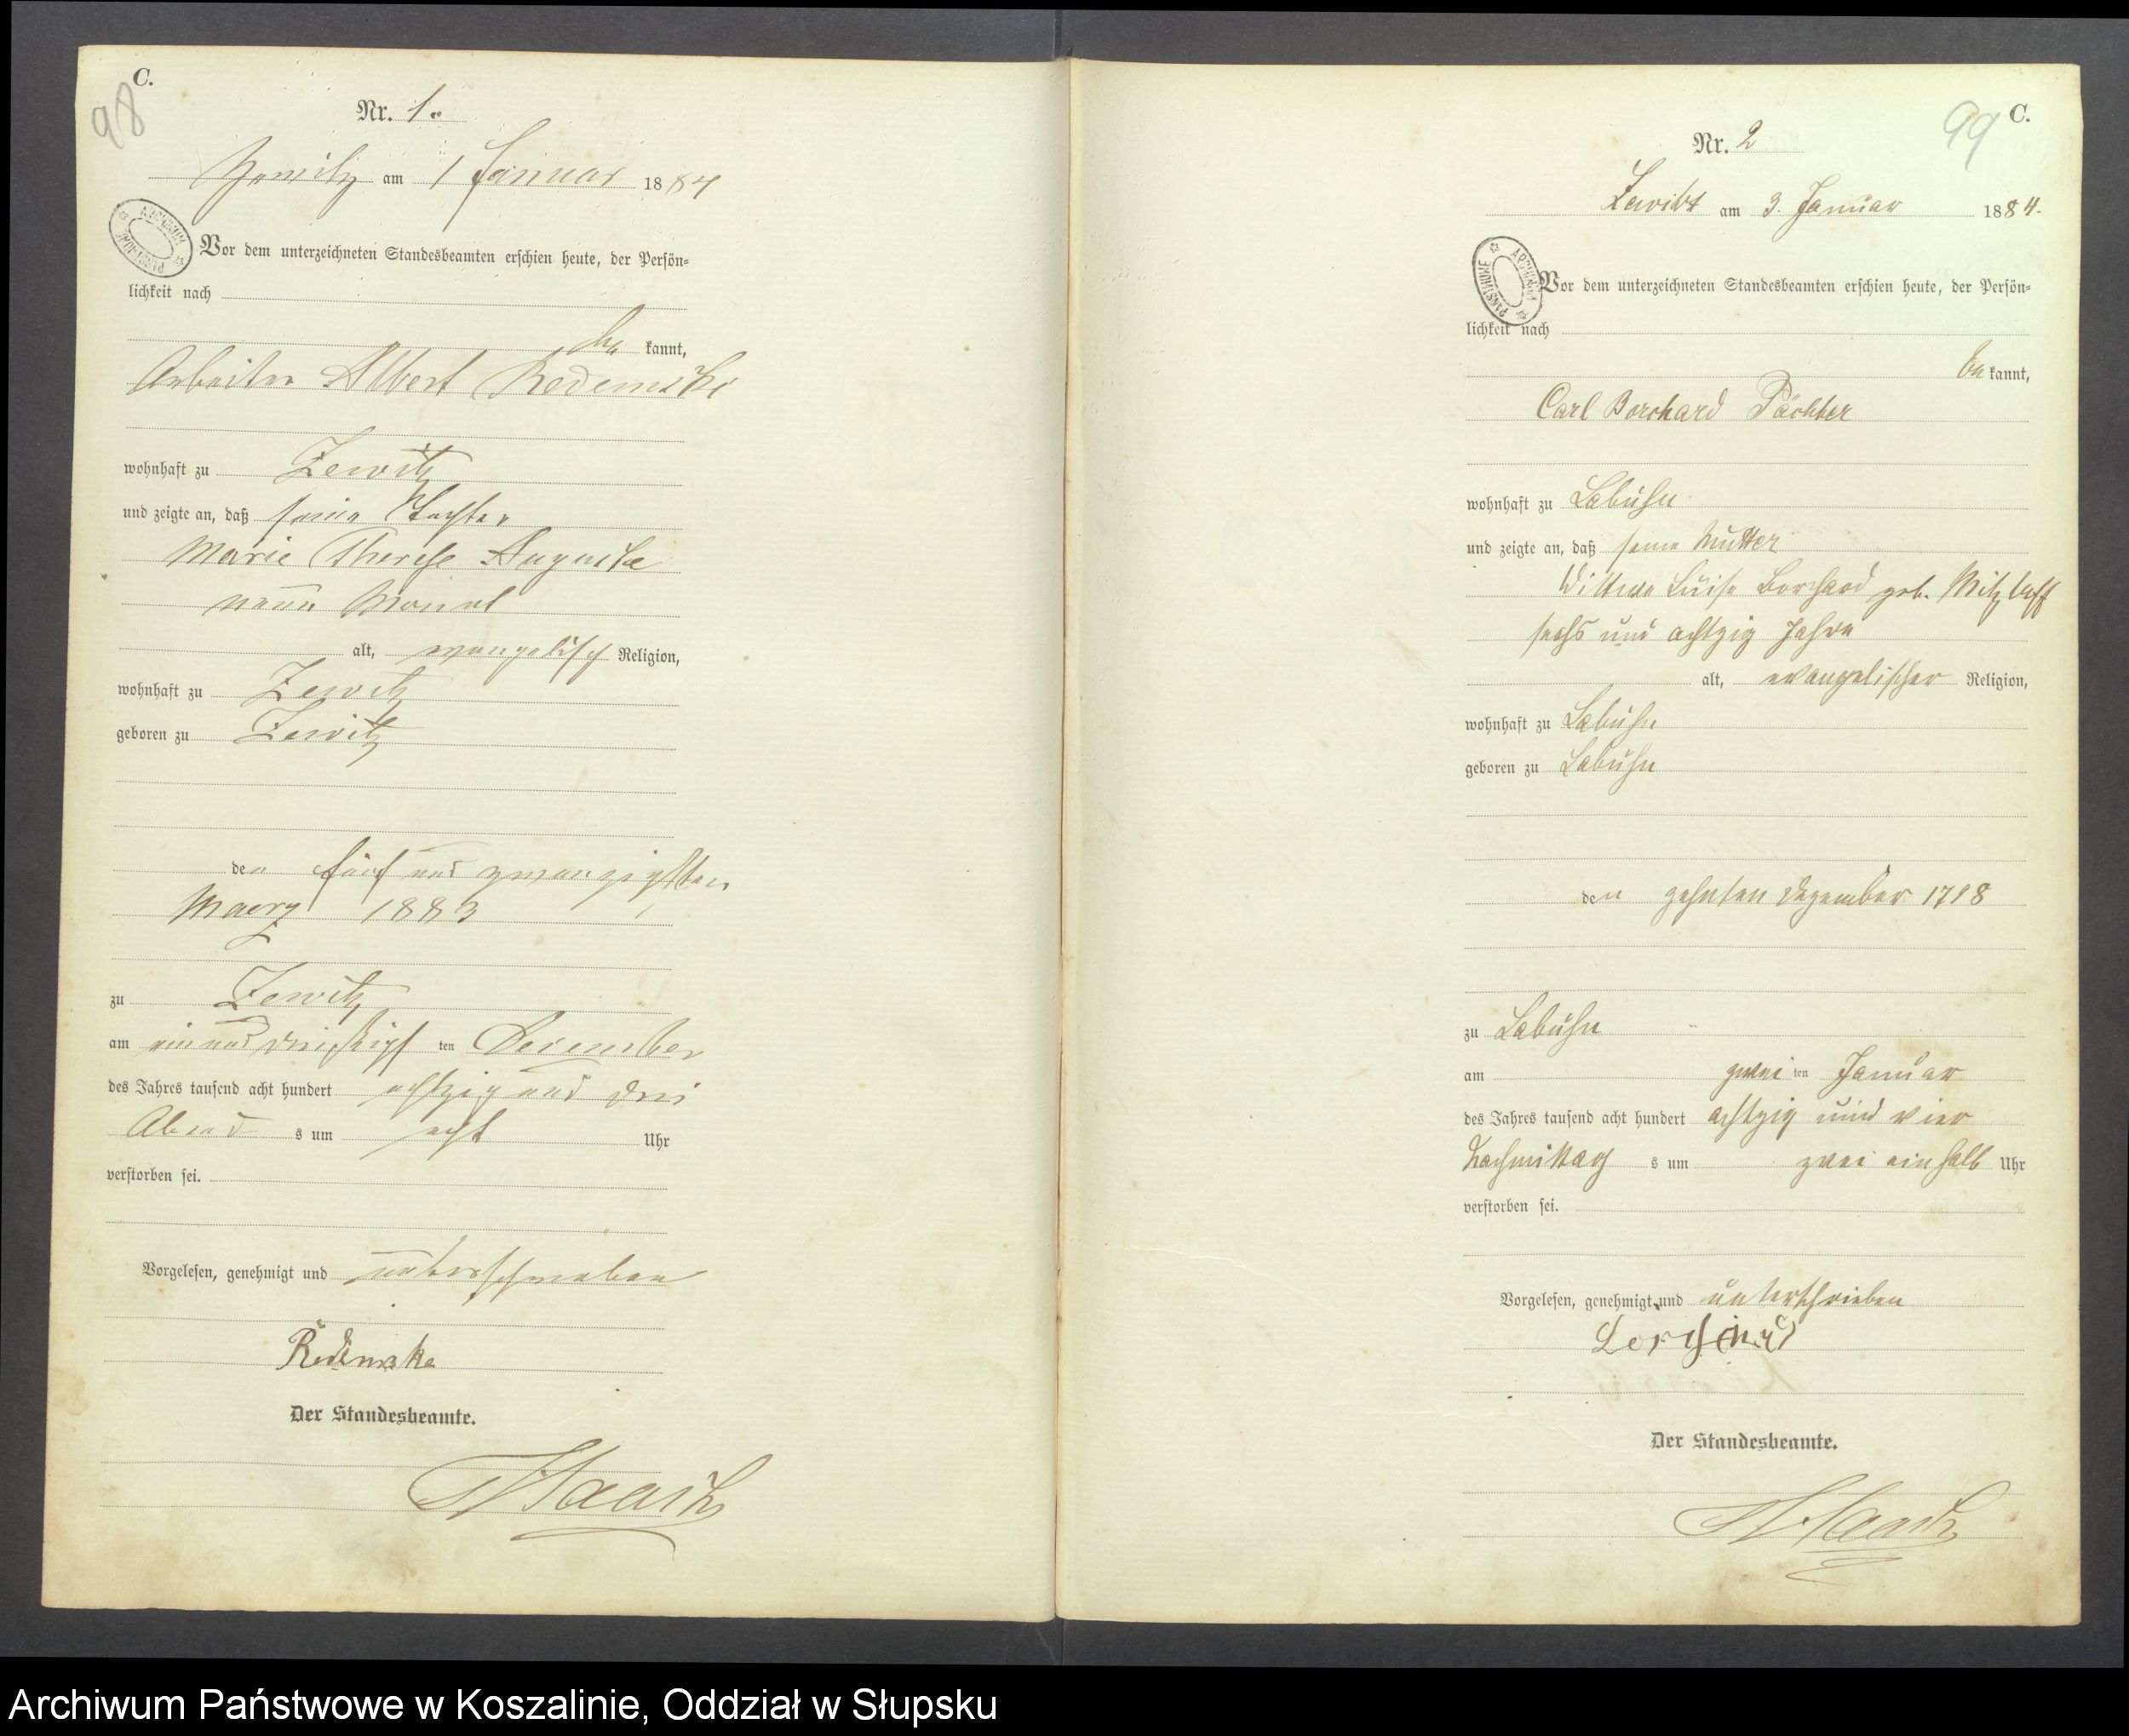 C.
98
Nr. 1.
Zewitz am 1 Januar 1884
ARCHIWUM PAŃSTWOWE
Vor dem unterzeichneten Standesbeamten erschien heute, der Persön-
lichkeit nach
be kannt,
Arbeiter Albert Redemske
wohnhaft zu Zewitz
und zeigte an, daß seine Tochter
Marie Therese Auguste
neun Monat
alt, evangelisch Religion,
wohnhaft zu Zewitz
geboren zu Zewitz
den fünf und zwanzigsten
Maerz 1883
zu Zewitz
am ein und dreißigst ten December
des Jahres tausend acht hundert achtzig und drei
Abend s um acht Uhr
verstorben sei.
Vorgelesen, genehmigt und unterschrieben
Redemske
Der Standesbeamte.
C.
99
Nr. 2
Zewitz am 3. Januar 1884.
ARCHIWUM PAŃSTWOWE
Vor dem unterzeichneten Standesbeamten erschien heute, der Persön-
lichkeit nach
be kannt,
Carl Borchard Pächter
wohnhaft zu Labuhn
und zeigte an, daß seine Mutter
Wittwe Luise Borchard geb. Mitzlaff
sechs und achtzig Jahre
alt, evangelischer Religion,
wohnhaft zu Labuhn
geboren zu Labuhn
den zehnten Dezember 1798
zu Labuhn
am zwei ten Januar
des Jahres tausend acht hundert achtzig und vier
Nachmittag s um zwei einhalb Uhr
verstorben sei.
Vorgelesen, genehmigt und unterschrieben
Borchard
Der Standesbeamte.
Archiwum Państwowe w Koszalinie, Oddział w Słupsku